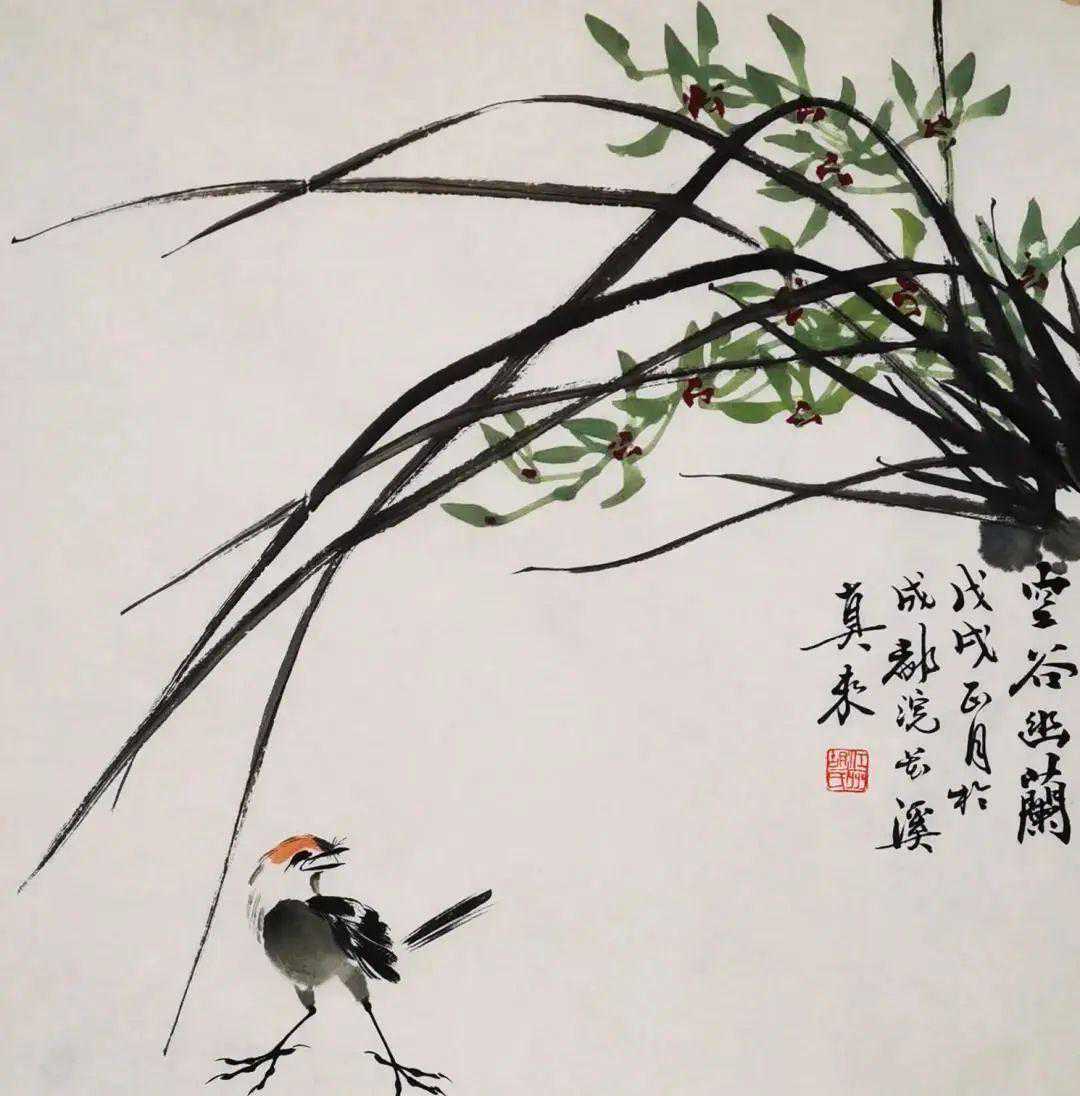 空谷幽蘭
戊戌正月於
成都浣花溪
真來